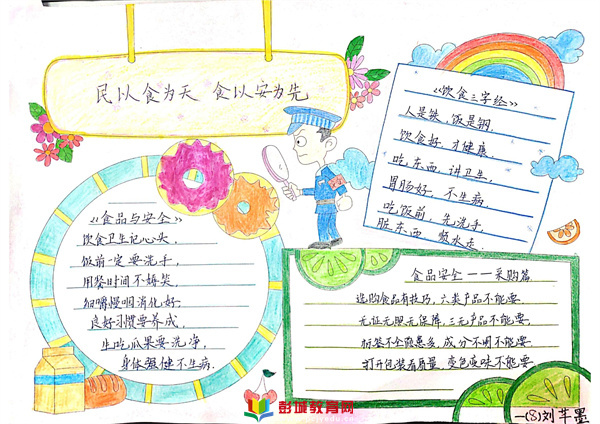 民以食为天 食以安为先
《饮食三字经》
人是铁,饭是钢,
饮食好,才健康,
吃东西,讲卫生,
胃肠好,不生病,
吃饭前,先洗手,
脏东西,顺水走.
《食品与安全》
饮食卫生记心头,
饭前一定要洗手,
用餐时间不嬉笑,
细嚼慢咽消化好.
良好习惯要养成,
生吃瓜果要洗净,
身体强健不生病.
食品安全——采购篇
选购食品有技巧,六类产品不能要.
无证无照无保障,三无产品不能要.
标签不全隐患多,成分不明不能要.
打开包装看质量,变色变味不能要.
彭城教育网
一(8)刘芊墨